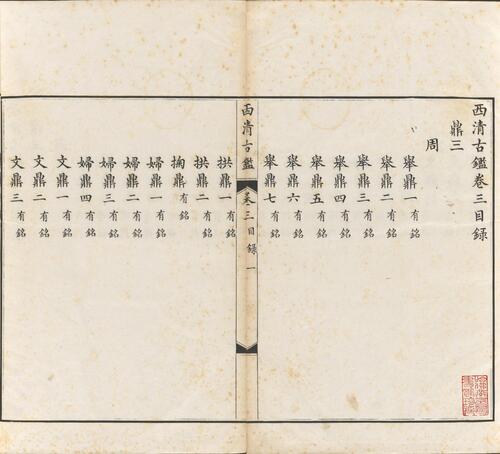 西清古鑑卷三目錄
鼎三
周
舉鼎一 有銘
舉鼎二 有銘
舉鼎三 有銘
舉鼎四 有銘
舉鼎五 有銘
舉鼎六 有銘
舉鼎七 有銘
西清古鑑 卷三目錄 一
拱鼎一 有銘
拱鼎二 有銘
掬鼎 有銘
婦鼎一 有銘
婦鼎二 有銘
婦鼎三 有銘
婦鼎四 有銘
文鼎一 有銘
文鼎二 有銘
文鼎三 有銘